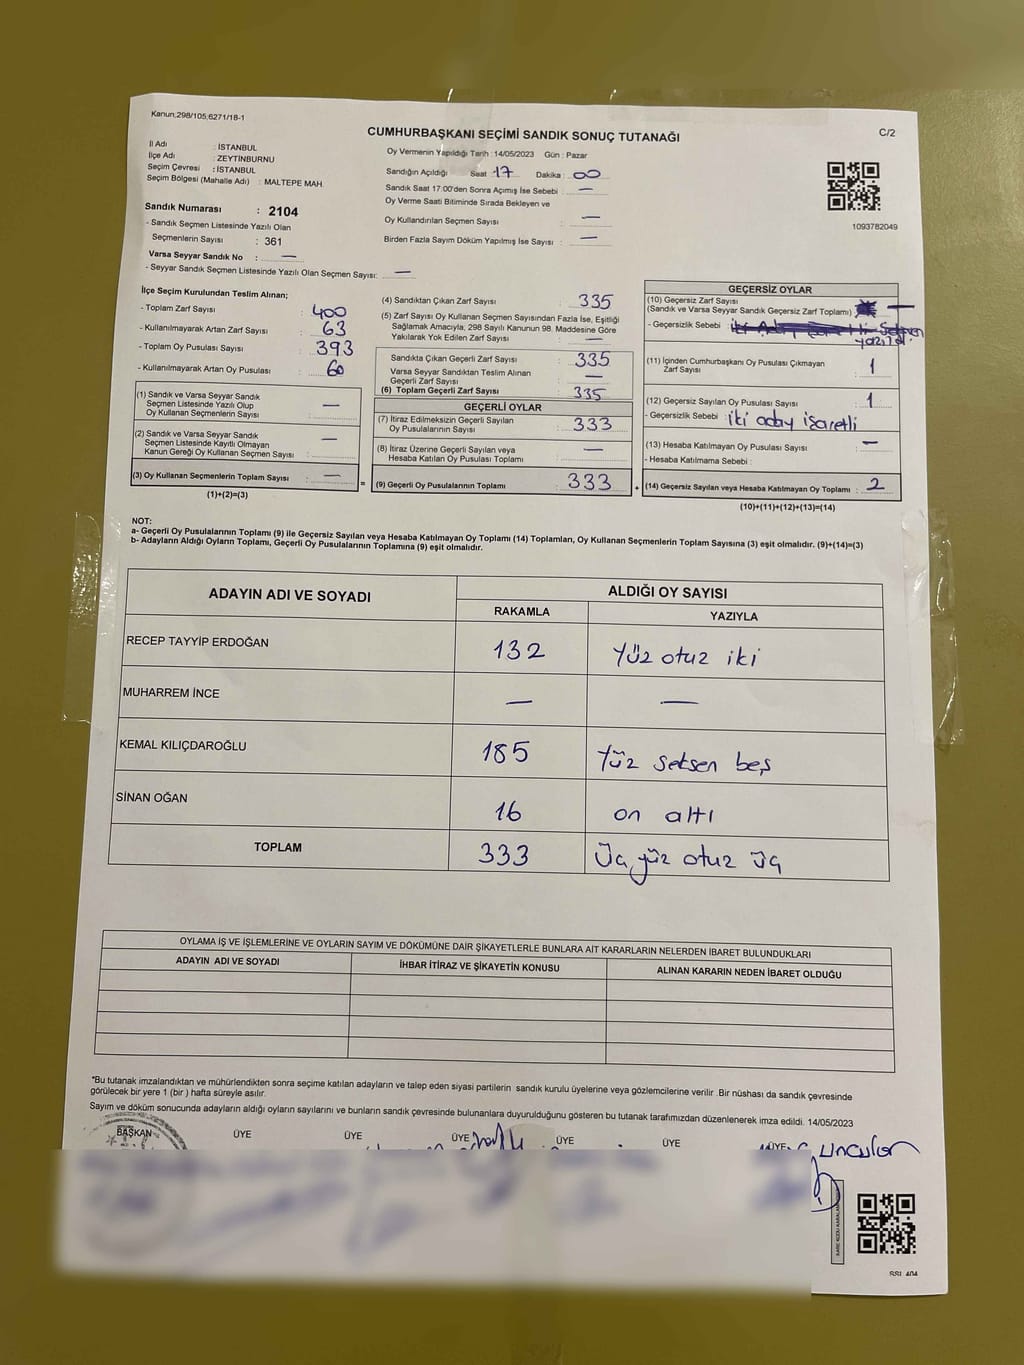 Kanun;298/105;6271/18-1
CUMHURBAŞKANI SEÇİMİ SANDIK SONUÇ TUTANAĞI
C/2
İl Adı : İSTANBUL
İlçe Adı : ZEYTİNBURNU
Seçim Çevresi : İSTANBUL
Seçim Bölgesi (Mahalle Adı) : MALTEPE MAH.
Sandık Numarası : 2104
- Sandık Seçmen Listesinde Yazılı Olan
Seçmenlerin Sayısı : 361
Varsa Seyyar Sandık No : —
- Seyyar Sandık Seçmen Listesinde Yazılı Olan Seçmen Sayısı: —
Oy Vermenin Yapıldığı Tarih : 14/05/2023 Gün : Pazar
Sandığın Açıldığı Saat 17 Dakika : 00
Sandık Saat 17:00'den Sonra Açımış İse Sebebi : —
Oy Verme Saati Bitiminde Sırada Bekleyen ve
Oy Kullandırılan Seçmen Sayısı : —
Birden Fazla Sayım Döküm Yapılmış İse Sayısı : —
1093782049
İlçe Seçim Kurulundan Teslim Alınan;
- Toplam Zarf Sayısı : 400
- Kullanılmayarak Artan Zarf Sayısı : 63
- Toplam Oy Pusulası Sayısı : 393
- Kullanılmayarak Artan Oy Pusulası : 60
(1) Sandık ve Varsa Seyyar Sandık
Seçmen Listesinde Yazılı Olup
Oy Kullanan Seçmenlerin Sayısı : —
(2) Sandık ve Varsa Seyyar Sandık
Seçmen Listesinde Kayıtlı Olmayan
Kanun Gereği Oy Kullanan Seçmen Sayısı : —
(3) Oy Kullanan Seçmenlerin Toplam Sayısı : — =
(1)+(2)=(3)
(4) Sandıktan Çıkan Zarf Sayısı : 335
(5) Zarf Sayısı Oy Kullanan Seçmen Sayısından Fazla İse, Eşitliği
Sağlamak Amacıyla, 298 Sayılı Kanunun 98. Maddesine Göre
Yakılarak Yok Edilen Zarf Sayısı : —
Sandıkta Çıkan Geçerli Zarf Sayısı : 335
Varsa Seyyar Sandıktan Teslim Alınan
Geçerli Zarf Sayısı : —
(6) Toplam Geçerli Zarf Sayısı : 335
GEÇERLİ OYLAR
(7) İtiraz Edilmeksizin Geçerli Sayılan
Oy Pusulalarının Sayısı : 333
(8) İtiraz Üzerine Geçerli Sayılan veya
Hesaba Katılan Oy Pusulası Toplamı : —
(9) Geçerli Oy Pusulalarının Toplamı : 333 +
GEÇERSİZ OYLAR
(10) Geçersiz Zarf Sayısı
(Sandık ve Varsa Seyyar Sandık Geçersiz Zarf Toplamı) : —
- Geçersizlik Sebebi :
(11) İçinden Cumhurbaşkanı Oy Pusulası Çıkmayan
Zarf Sayısı : 1
(12) Geçersiz Sayılan Oy Pusulası Sayısı : 1
- Geçersizlik Sebebi : iki aday işaretli
(13) Hesaba Katılmayan Oy Pusulası Sayısı : —
- Hesaba Katılmama Sebebi :
(14) Geçersiz Sayılan veya Hesaba Katılmayan Oy Toplamı : 2
(10)+(11)+(12)+(13)=(14)
NOT:
a- Geçerli Oy Pusulalarının Toplamı (9) ile Geçersiz Sayılan veya Hesaba Katılmayan Oy Toplamı (14) Toplamları, Oy Kullanan Seçmenlerin Toplam Sayısına (3) eşit olmalıdır. (9)+(14)=(3)
b- Adayların Aldığı Oyların Toplamı, Geçerli Oy Pusulalarının Toplamına (9) eşit olmalıdır.
ADAYIN ADI VE SOYADI ALDIĞI OY SAYISI
RAKAMLA YAZIYLA
RECEP TAYYİP ERDOĞAN 132 Yüz otuz iki
MUHARREM İNCE — —
KEMAL KILIÇDAROĞLU 185 Yüz seksen beş
SİNAN OĞAN 16 on altı
TOPLAM 333 Üç yüz otuz üç
OYLAMA İŞ VE İŞLEMLERİNE VE OYLARIN SAYIM VE DÖKÜMÜNE DAİR ŞİKAYETLERLE BUNLARA AİT KARARLARIN NELERDEN İBARET BULUNDUKLARI
ADAYIN ADI VE SOYADI İHBAR İTİRAZ VE ŞİKAYETİN KONUSU ALINAN KARARIN NEDEN İBARET OLDUĞU
*Bu tutanak imzalandıktan ve mühürlendikten sonra seçime katılan adayların ve talep eden siyasi partilerin sandık kurulu üyelerine veya gözlemcilerine verilir .Bir nüshası da sandık çevresinde
görülecek bir yere 1 (bir ) hafta süreyle asılır.
Sayım ve döküm sonucunda adayların aldığı oyların sayılarını ve bunların sandık çevresinde bulunanlara duyurulduğunu gösteren bu tutanak tarafımızdan düzenlenerek imza edildi. 14/05/2023
BAŞKAN ÜYE ÜYE ÜYE ÜYE ÜYE ÜYE